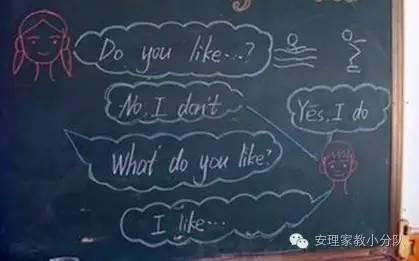 Do you like...?
No, I don't
Yes, I do
What do you like?
I like...
安理家教小分队